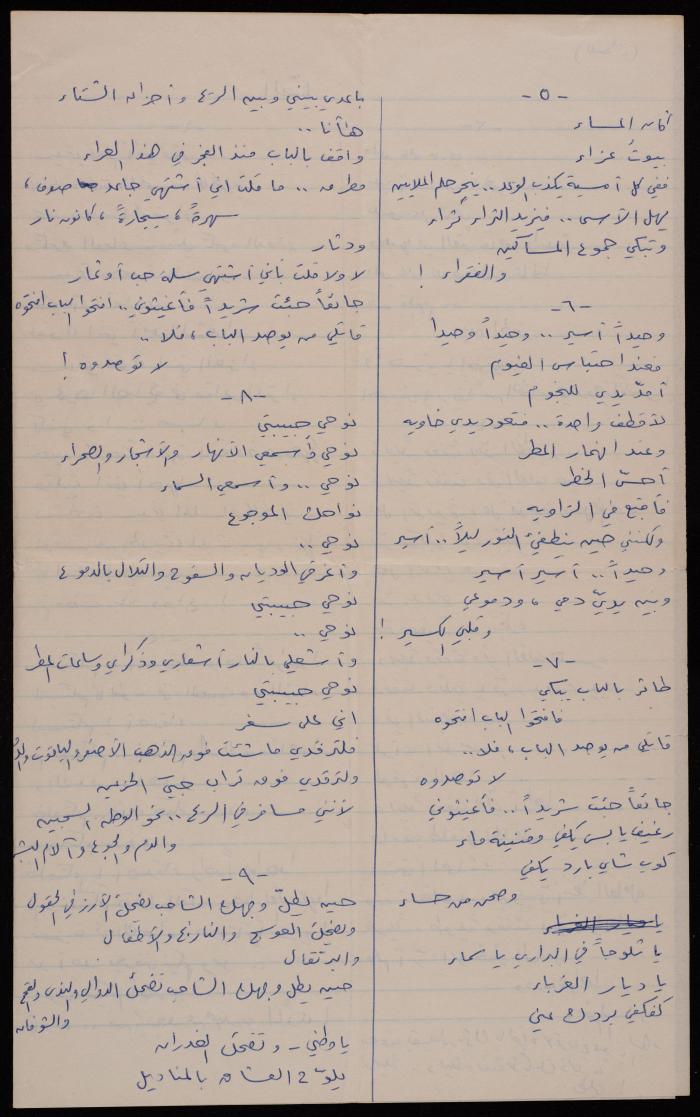 - ٥ -
أكان المساء
بيوتُ عزاء
ففي كل أمسية يكذب الوعد .. ينحر حلم الملايين
يهل الأسى .. فيزيد الثراء ثراء
وتبكي جموع المساكين
والفقراء !
- ٦ -
وحيداً أسير .. وحيداً وحيدا
فعند احتباس الغيوم
أمدّ يدي للنجوم
لأقطف واحدة .. فتعود يدي خاويه
وعند انهمار المطر
أحسّ الخطر
فأقبع في الزاويه
ولكنني حين ينطفئ النور ليلاً .. أسير
وحيداً .. أسير أسير
وبين يديّ دمي ، ودموعي
وقلبي لكسير !
- ٧ -
طائر بالباب يبكي
فافتحوا الباب افتحوه
قاتلي من يوصد الباب ، فلا ..
لا توصدوه
جائعاً جئت شريداً .. فأغيثوني
رغيف يابس يكفي وقنينة ماء
كوب شاي بارد يكفي
وصحن من حساء
يا ديار الغرباء
يا ثلوجاً في البراري يا سماء
يا ديار الغرباء
كفكفي بردك عني
باعدي بيني وبين الريح وأحزان الشتاء
هأنا ..
واقف بالباب منذ الفجر في هذا العراء
مطرقه .. ما قلت اني أشتهي جاعد صوف ،
سهرةً ، سيجارةً ، كانون نار
ودثار
لا ولا قلت بأني أشتهي سلة حب أو ثمار
جائعاً جئت شريداً فأغيثوني .. افتحوا الباب افتحوه
قاتلي من يوصد الباب ، فلا ..
لا توصدوه !
- ٨ -
نوحي حبيبتي
نوحي وأسمعي الأنهار والأشجار والصحراء
نوحي .. وأسمعي السماء
نواحك الموجوع
نوحي ..
وأغرقي الوديان والسفوح والتلال بالدموع
نوحي حبيبتي
نوحي ..
وأشعلي بالنار أشعاري وذكراي وساعات المطر
نوحي حبيبتي
اني على سفر
فلترقدي ما شئت فوق الذهب الأصفر والياقوت
ولترقدي فوق تراب حبي الحزين
لأنني مسافر في الريح .. نحو الوطن السجين
والدم والجوع وآلام
- ٩ -
حين يطلّ وجهك الشاحب تضحك الأرز في الحقول
ويضحك العوسج والنارنج والأطفال
والبرتقال
حين يطل وجهك الشاحب تضحك الدوالي والندى والقمح
والشوفان
يا وطني - وتضحك الغدران
يلوّح العشاق بالمناديل